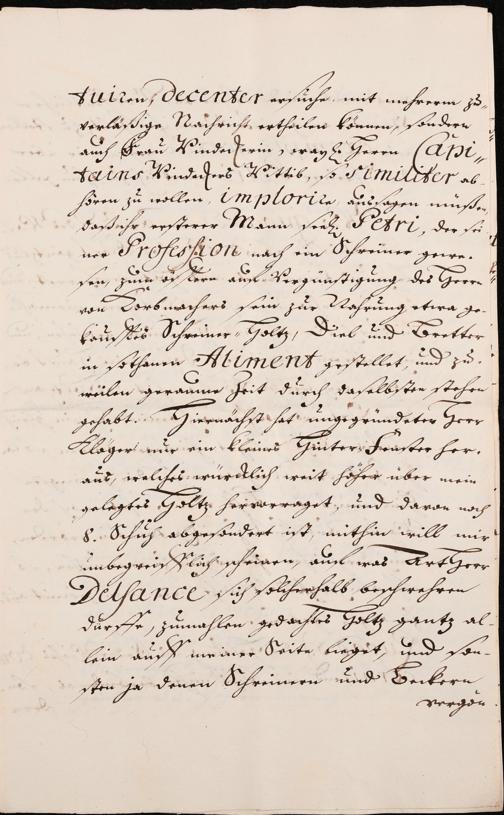 tuiren, decenter ersuche mit mehrerm zu-
verläßige Nachricht ertheilen können, sondern
auch Frau Kinder Herrn Capi-
tains Wittib, so similiter ab-
hören zu wollen, implorire aussagen müßen
daß ihr ersterer Mann seel. Petri, der sei-
ner Profession nach ein Schreiner gewe-
sen, zum öfftern aus Vergünstigung des Herrn
von sein zur Nahrung etwa ge-
kaufftes Schreiner-Holtz, Diel und Bretter
in sothanen Aliment gestellet, und zu-
weilen geraume Zeit durch daselbsten stehen
gehabt. Hiernächst hat ungegründeter Herr
Kläger nur ein kleines Hinter-Fenster her-
aus, welches würcklich weit höher über mein
gelegtes Holtz hervorraget, und davon noch
8. Schuh abgesondert ist, mithin will mir
unbegreifflich scheinen, auf was Art Herr
Delsance sich solcherhalb beschwehren
dürffe, zumahlen gedachtes Holtz gantz al-
lein auff meiner Seite lieget, und son-
sten ja denen Schreinern und Beckern
vergön-